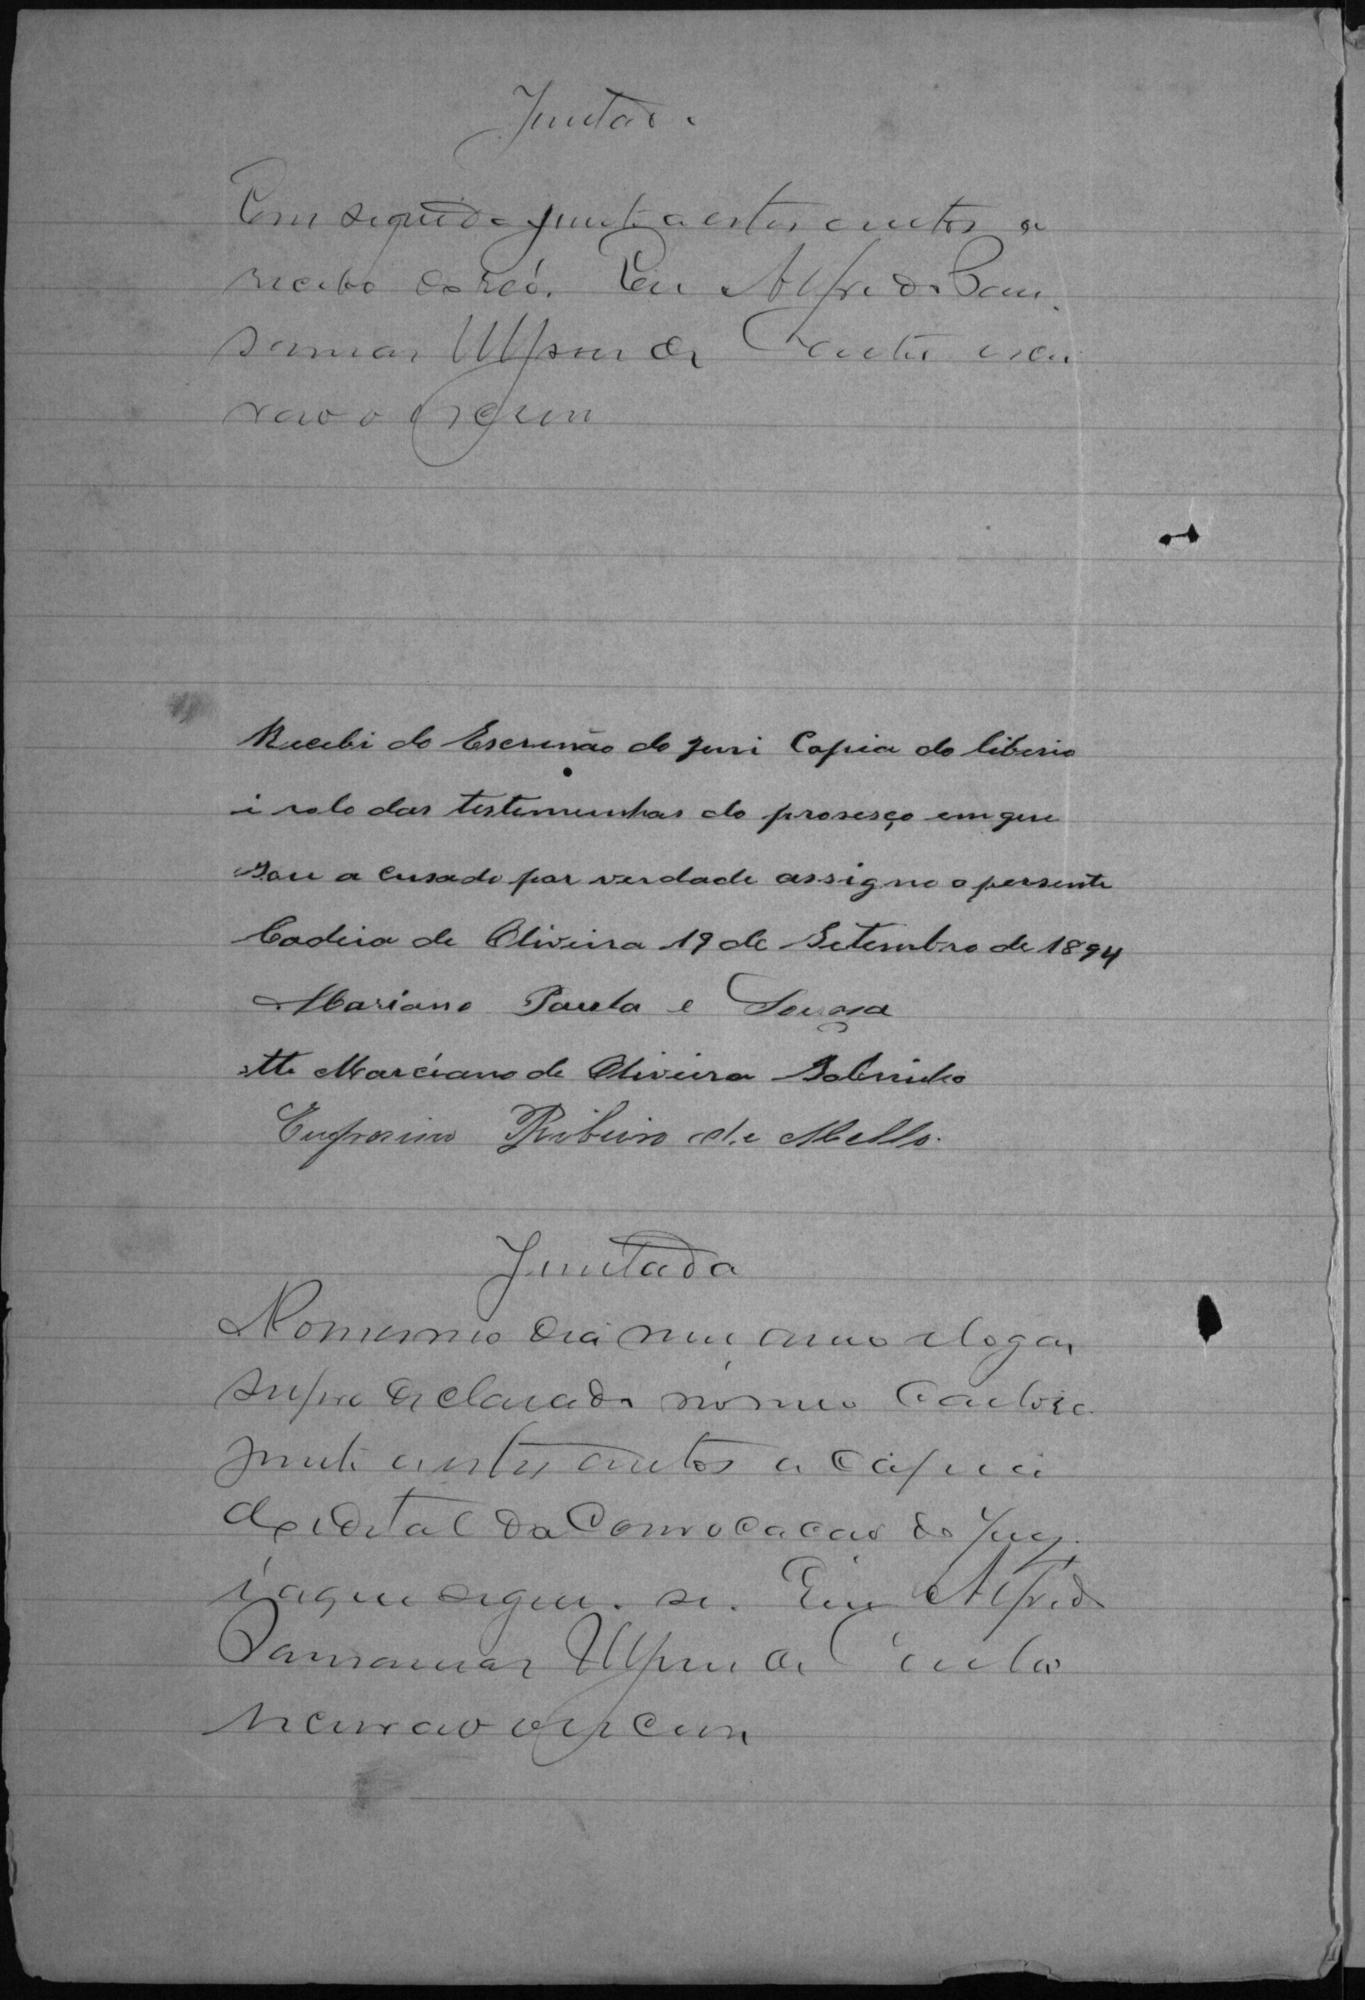 Juntada.
Em seguida junto a estes autos o
recibo do réo. Eu Alfredo
de
vão o
Recebi do Escrivão do Juri Copia do liberio
i rolo das testimunhas do prosesço em que
sou a cusado por verdade assigno o persente
Cadeia de Oliveira 19 de Setembro de 1894
Mariano Paula e Sousa
Marciano de Oliveira Sobrinho
Eufrasino Ribeiro de Mello.
Juntada
No mesmo dia mez anno e logar
supra declarado no meu Cartorio
junto a estes autos a copia
do edital da Convocacao do Jury
a que segue-se. Eu Alfredo
de
escrivão o